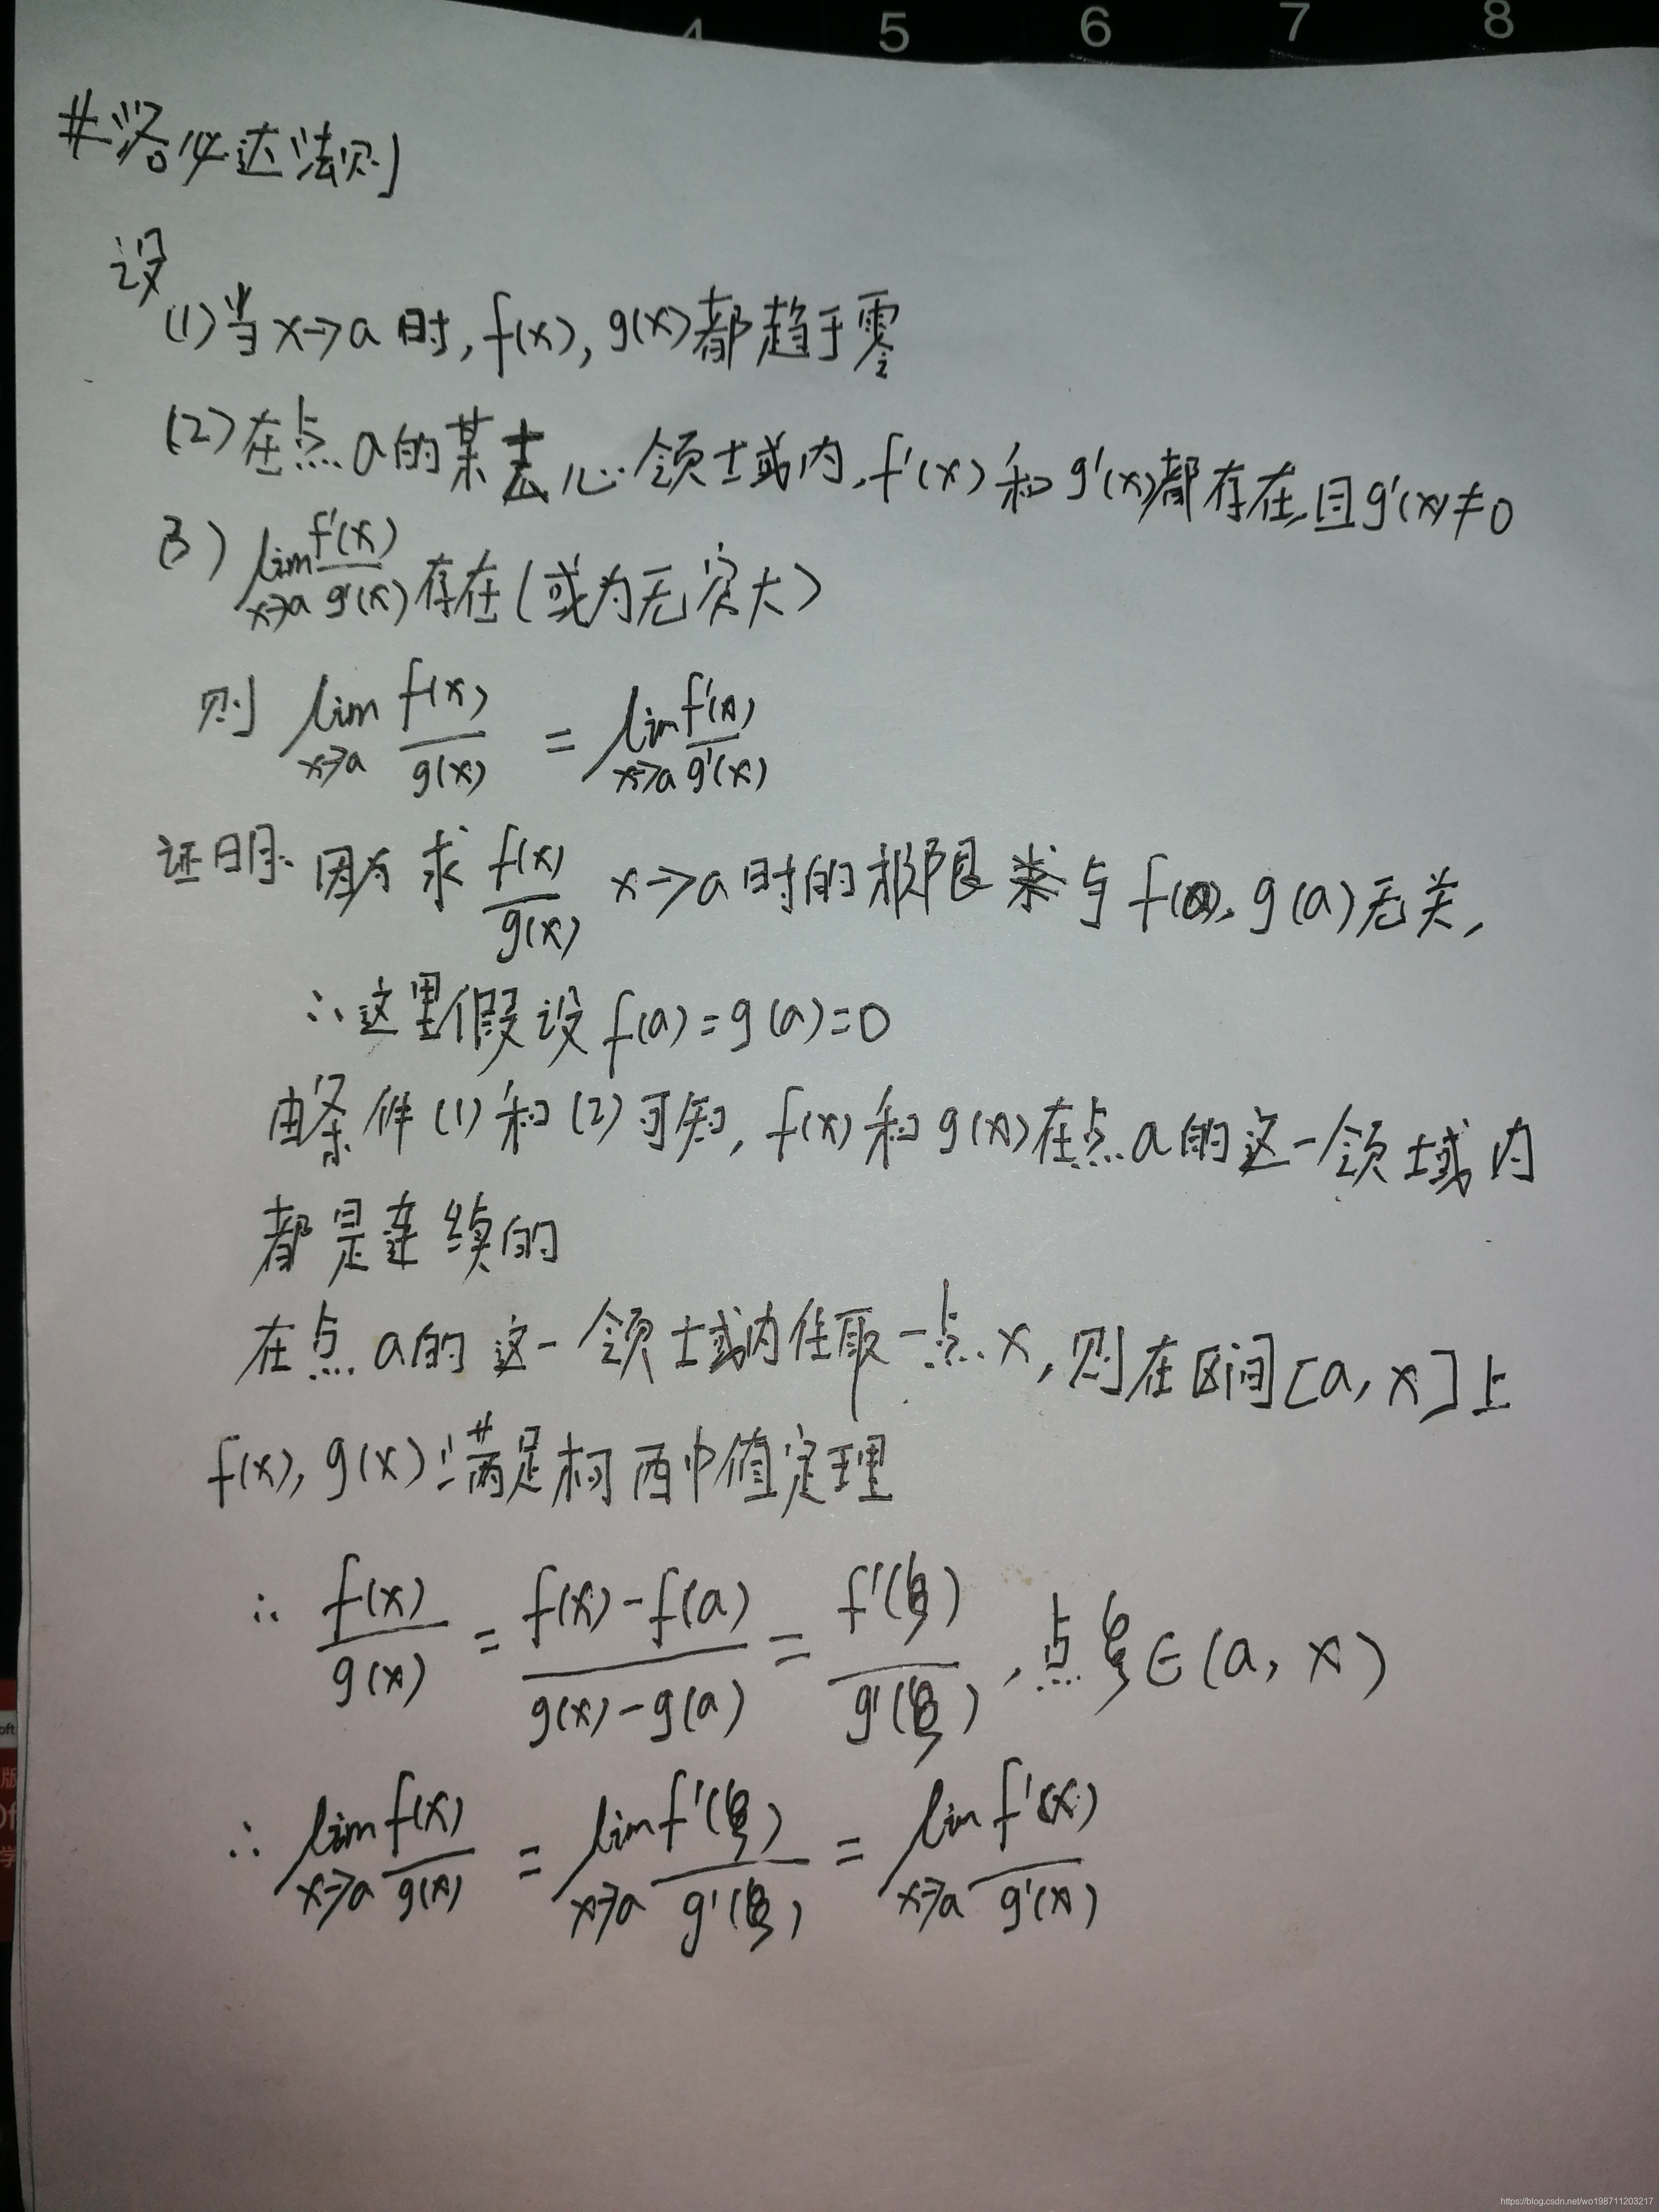 4 5 6 7 8
#洛必达法则
设
(1)当x→a时,f(x),g(x)都趋于零
(2)在点a的某去心领域内,f'(x)和g'(x)都存在,且g'(x)≠0
(3) lim x→a f'(x)/g'(x) 存在(或为无穷大)
则 lim x→a f(x)/g(x) = lim x→a f'(x)/g'(x)
证明: 因为求 f(x)/g(x) x→a时的极限 与f(a),g(a)无关,
∴这里假设f(a)=g(a)=0
由条件(1)和(2)可知,f(x)和g(x)在点a的这一领域内
都是连续的
在点a的这一领域内任取一点x,则在区间[a,x]上
f(x),g(x)满足柯西中值定理
∴ f(x)/g(x) = (f(x)-f(a))/(g(x)-g(a)) = f'(ξ)/g'(ξ) ,点ξ∈(a,x)
∴ lim x→a f(x)/g(x) = lim x→a f'(ξ)/g'(ξ) = lim x→a f'(x)/g'(x)
oft
版
学
https://blog.csdn.net/wo198711203217